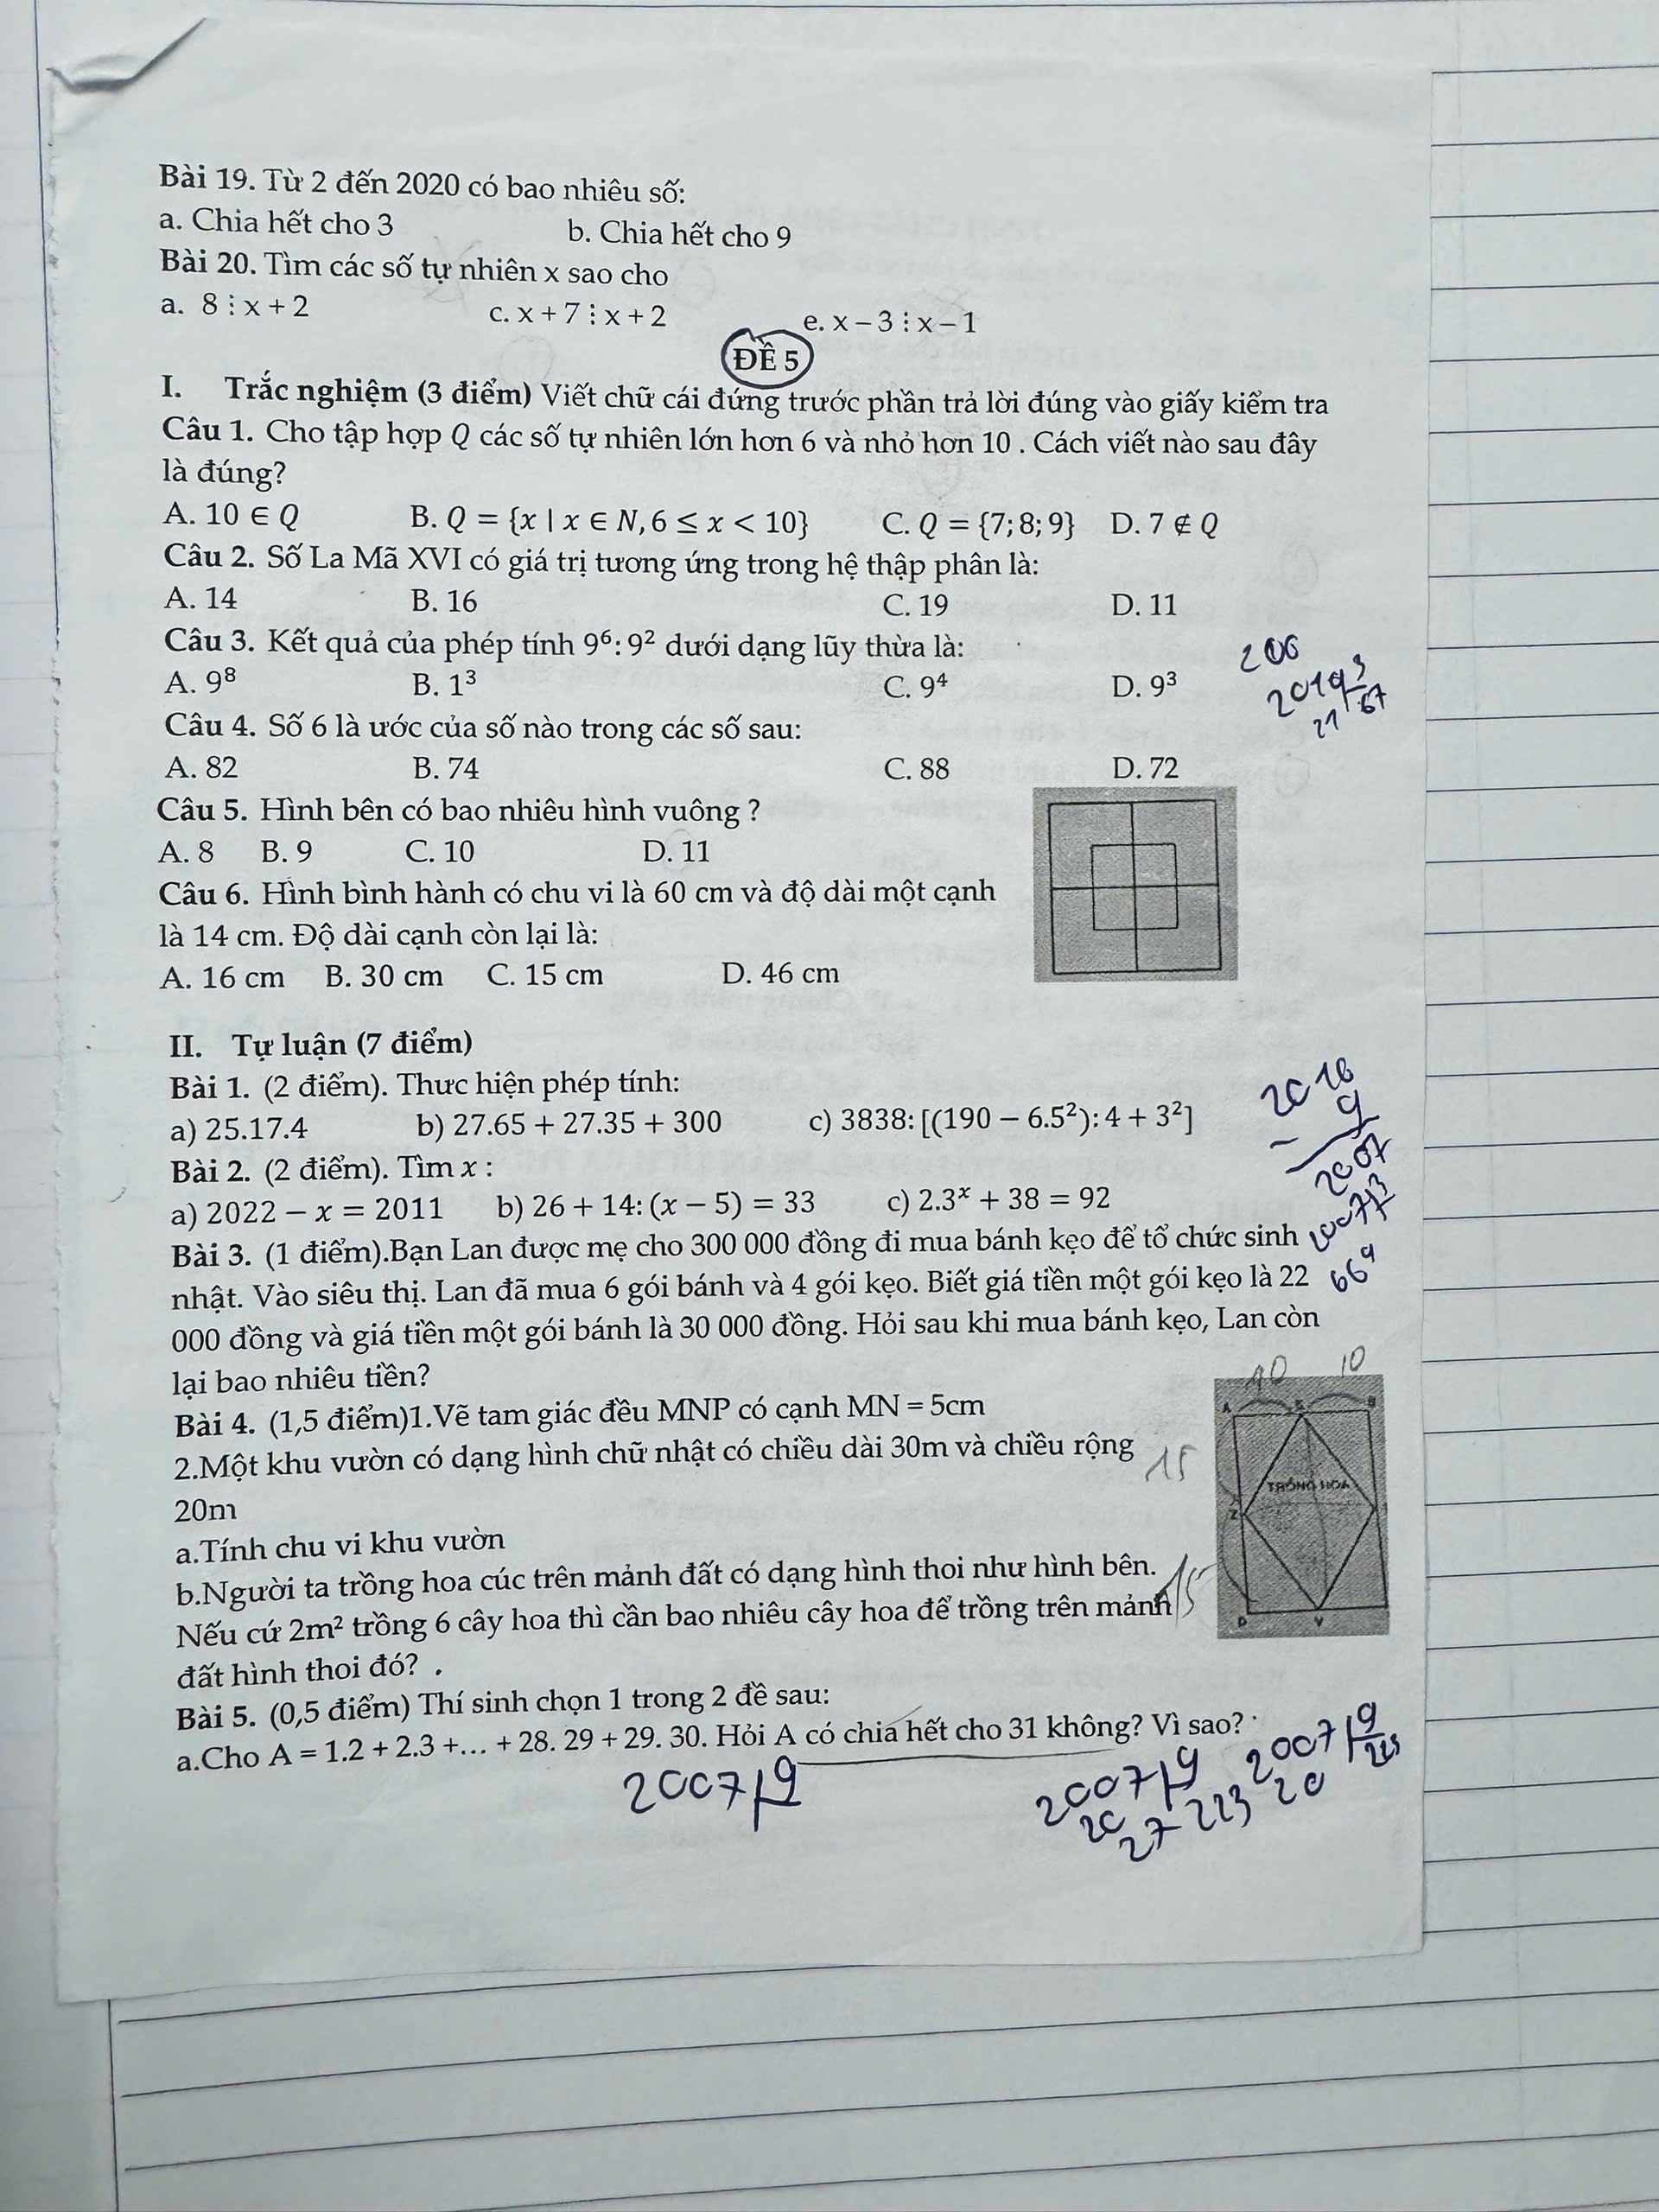 Bài 19. Từ 2 đến 2020 có bao nhiêu số:
a. Chia hết cho 3 b. Chia hết cho 9
Bài 20. Tìm các số tự nhiên x sao cho
a. 8 ⋮ x + 2 c. x + 7 ⋮ x + 2 e. x – 3 ⋮ x – 1
ĐỀ 5
I. Trắc nghiệm (3 điểm) Viết chữ cái đứng trước phần trả lời đúng vào giấy kiểm tra
Câu 1. Cho tập hợp Q các số tự nhiên lớn hơn 6 và nhỏ hơn 10 . Cách viết nào sau đây
là đúng?
A. 10 ∈ Q B. Q = {x | x ∈ N, 6 ≤ x < 10} C. Q = {7; 8; 9} D. 7 ∉ Q
Câu 2. Số La Mã XVI có giá trị tương ứng trong hệ thập phân là:
A. 14 B. 16 C. 19 D. 11
Câu 3. Kết quả của phép tính 9⁶: 9² dưới dạng lũy thừa là:
A. 9⁸ B. 1³ C. 9⁴ D. 9³
206
2019 3
21 67
Câu 4. Số 6 là ước của số nào trong các số sau:
A. 82 B. 74 C. 88 D. 72
Câu 5. Hình bên có bao nhiêu hình vuông ?
A. 8 B. 9 C. 10 D. 11
Câu 6. Hình bình hành có chu vi là 60 cm và độ dài một cạnh
là 14 cm. Độ dài cạnh còn lại là:
A. 16 cm B. 30 cm C. 15 cm D. 46 cm
II. Tự luận (7 điểm)
Bài 1. (2 điểm). Thưc hiện phép tính:
a) 25.17.4 b) 27.65 + 27.35 + 300 c) 3838: [(190 − 6.5²): 4 + 3²]
2016
- 9
2007
Bài 2. (2 điểm). Tìm x :
a) 2022 − x = 2011 b) 26 + 14: (x − 5) = 33 c) 2.3ˣ + 38 = 92
2007 3
669
Bài 3. (1 điểm).Bạn Lan được mẹ cho 300 000 đồng đi mua bánh kẹo để tổ chức sinh
nhật. Vào siêu thị. Lan đã mua 6 gói bánh và 4 gói kẹo. Biết giá tiền một gói kẹo là 22
000 đồng và giá tiền một gói bánh là 30 000 đồng. Hỏi sau khi mua bánh kẹo, Lan còn
lại bao nhiêu tiền?
Bài 4. (1,5 điểm)1.Vẽ tam giác đều MNP có cạnh MN = 5cm
2.Một khu vườn có dạng hình chữ nhật có chiều dài 30m và chiều rộng
20m
a.Tính chu vi khu vườn
b.Người ta trồng hoa cúc trên mảnh đất có dạng hình thoi như hình bên.
Nếu cứ 2m² trồng 6 cây hoa thì cần bao nhiêu cây hoa để trồng trên mảnh
đất hình thoi đó? .
10 10
A B
15
TRỒNG HOA
Z
15
D Y
Bài 5. (0,5 điểm) Thí sinh chọn 1 trong 2 đề sau:
a.Cho A = 1.2 + 2.3 +... + 28. 29 + 29. 30. Hỏi A có chia hết cho 31 không? Vì sao?
2007 9
2007 9
20 223
27
2007 9
20 223